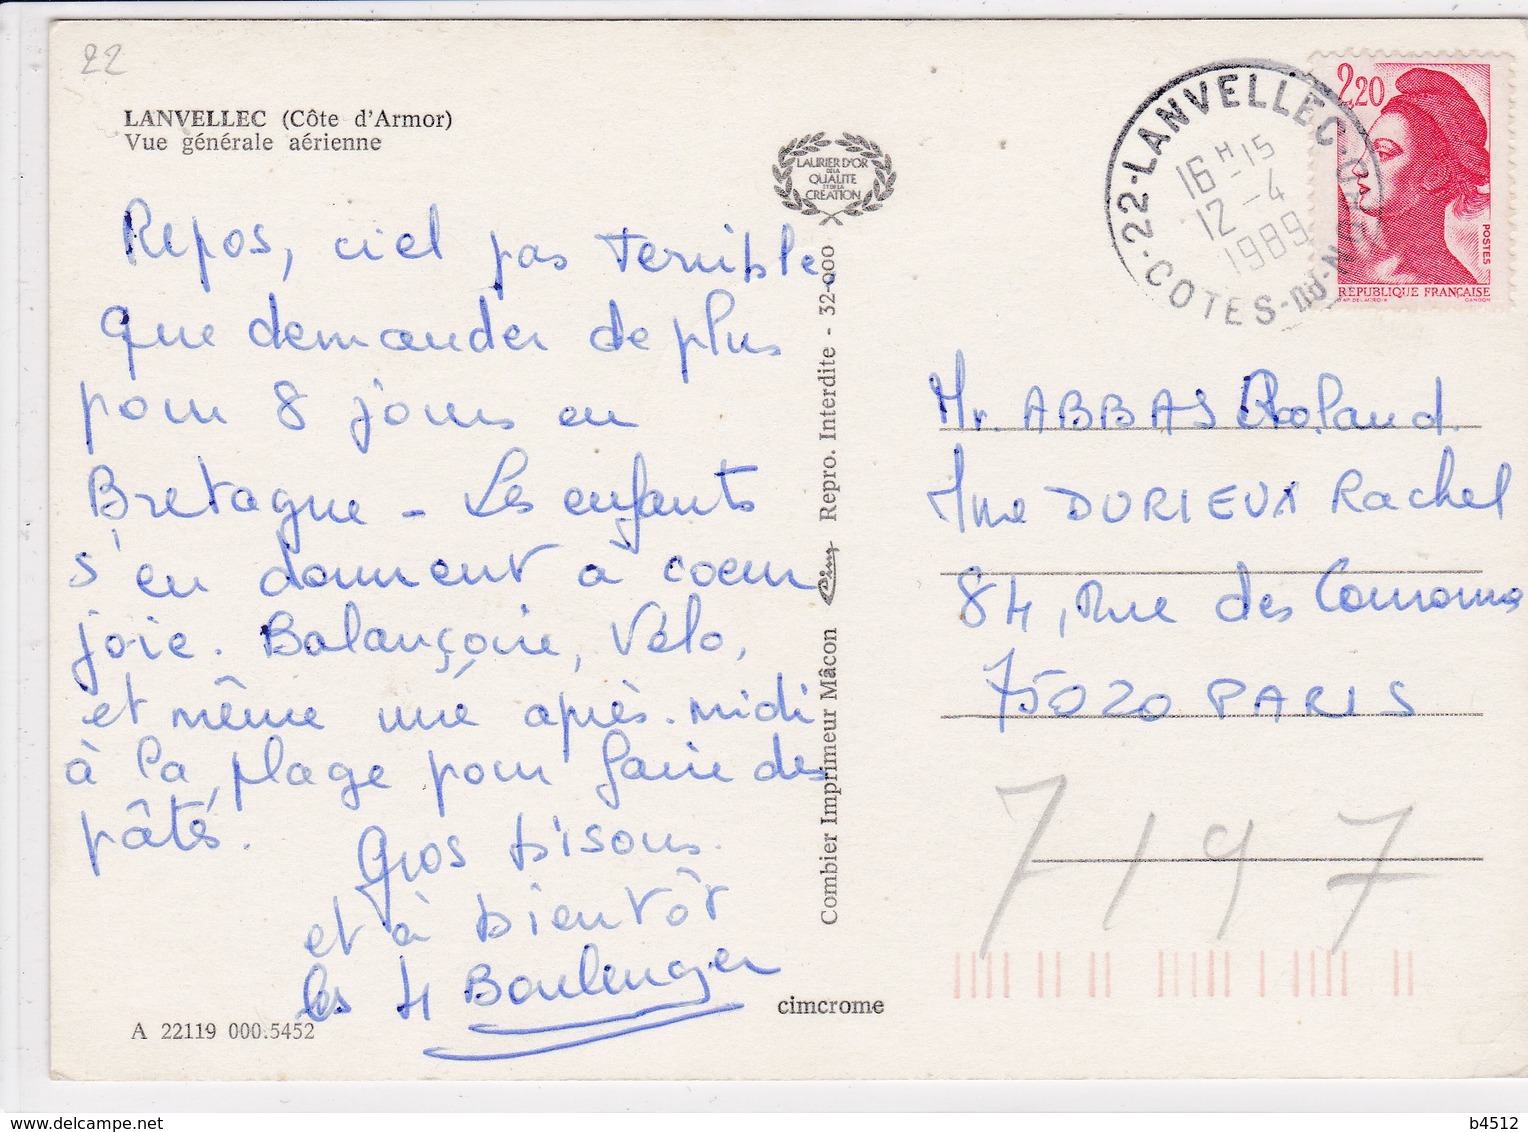 22
LANVELLEC (Côte d'Armor)
Vue générale aérienne
Repos, ciel pas terrible,
que demander de plus
pour 8 jours en
Bretagne - Les enfants
s'en donnent à coeur
joie. Balançoire, Vélo,
et même une après-midi
à la plage pour faire des
pâtés.
Gros bisous.
et à bientôt
les 4 Boulenger
A 22119 000.5452
cimcrome
LAURIER D'OR
DE LA
QUALITE
ET DE LA
CREATION
Combier Imprimeur Mâcon Cim Repro. Interdite - 32-000
22-LANVELLEC
16 H-15
12-4
1989
COTES-DU-NORD
2,20
POSTES
REPUBLIQUE FRANÇAISE
Mr. ABBAS Roland.
Mme DURIEUX Rachel
84, Rue des
75020 PARIS
7197
delcampe.net
b4512